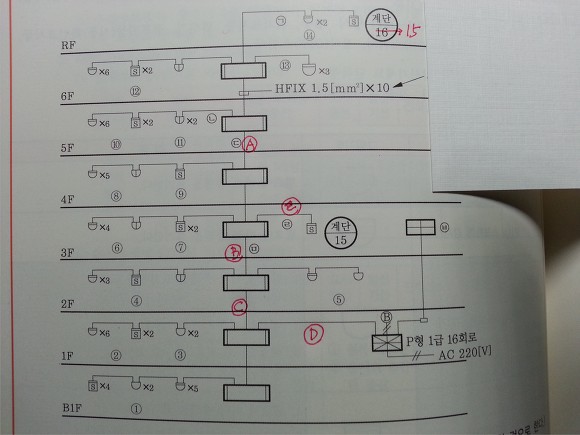 ㉠ ×2 S 계단 16 → 15
⑭
RF
×6 S ×2 ⑬ ×3
⑫
HFIX 1.5[mm²]×10
6F
×6 S ×2 ×2 ㉡
⑩ ⑪ ㉢ A
5F
×5 S
⑧ ⑨
4F
×4 S ×2 ㉣ S 계단 15
⑥ ⑦ B ㉤
3F
×3 S
④ ⑤
2F
C
×6 S ×2 D
② ③
P형 1급 16회로
AC 220[V]
1F
S ×4 ×2 ×5
①
B1F